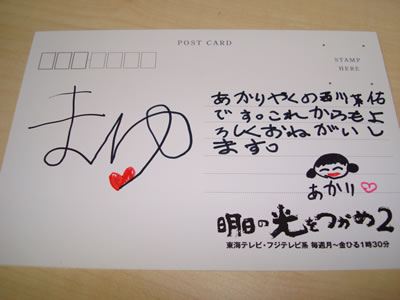 POST CARD
STAMP
HERE
まゆ
あかりやくの西川茉佑
です。これからもよ
ろしくおねがいし
ます。
あかり
明日の光をつかめ2
東海テレビ・フジテレビ系 毎週月~金ひる1時30分